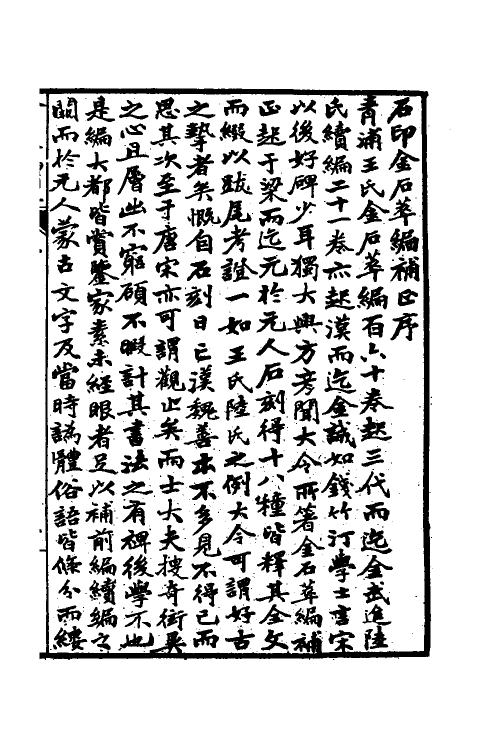 石印金石萃編補正序
青浦王氏金石萃編百六十卷起三代而迄金武進陸
氏續編二十一卷亦起漢而迄金誠如錢竹汀學士言宋
以後好碑少耳獨大興方彥聞大令所著金石萃編補
正起于梁而迄元於元人石刻得十八種皆釋其全文
而綴以跋尾考證一如王氏陸氏之例大令可謂好古
之摯者矣慨自石刻日亡漢魏善本不多見不得已而
思其次至于唐宋亦可謂觀止矣而士大夫搜奇衒異
之心且層出不窮顧不暇計其書法之有裨後學不也
是編大都皆賞鑒家素未經眼者足以補前編續編之
闕而於元人蒙古文字及當時譌體俗語皆條分而縷